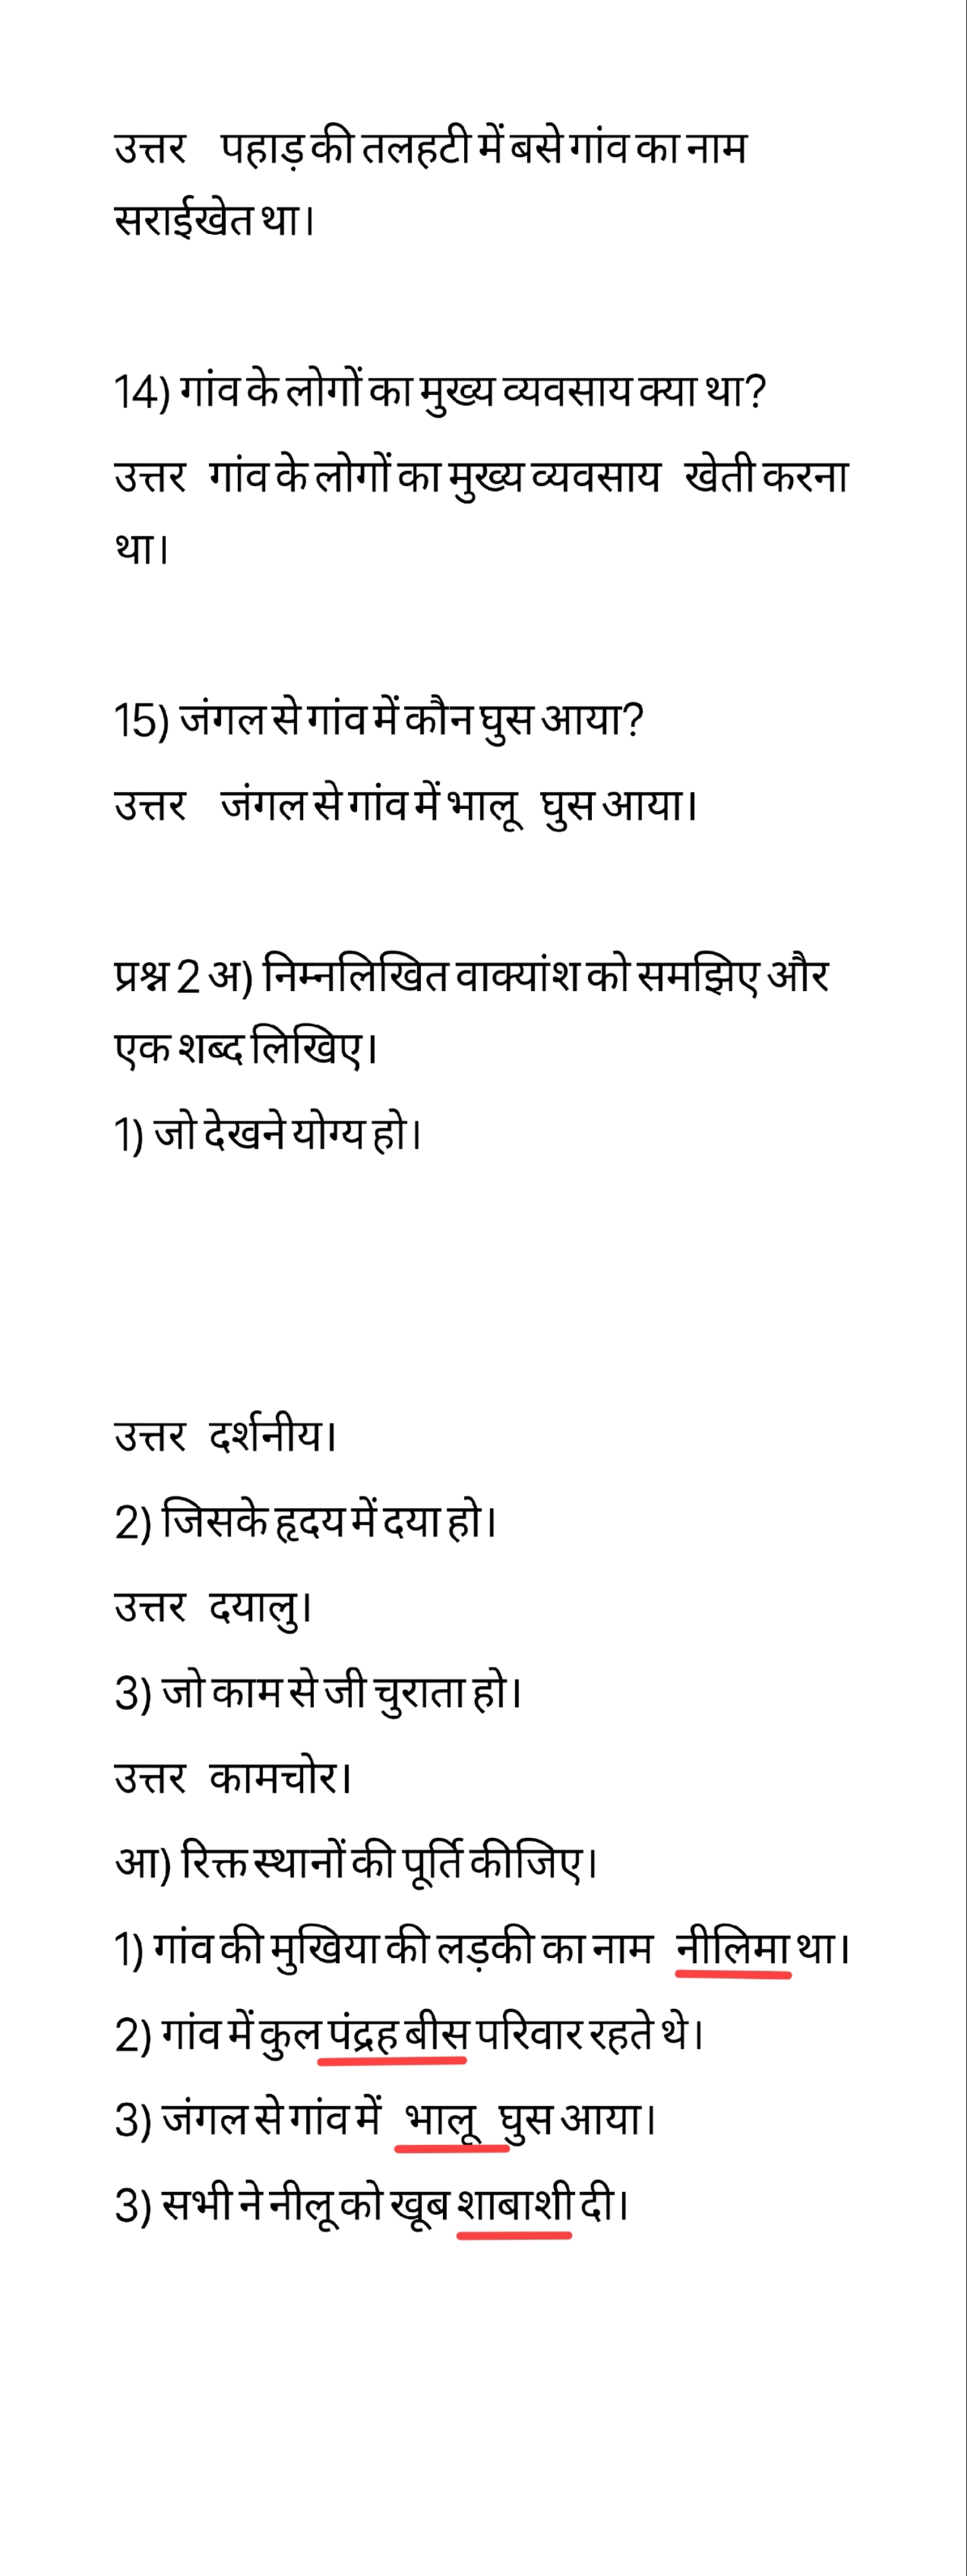 उत्तर पहाड़ की तलहटी में बसे गांव का नाम
सराईखेत था।
14) गांव के लोगों का मुख्य व्यवसाय क्या था?
उत्तर गांव के लोगों का मुख्य व्यवसाय खेती करना
था।
15) जंगल से गांव में कौन घुस आया?
उत्तर जंगल से गांव में भालू घुस आया।
प्रश्न 2 अ) निम्नलिखित वाक्यांश को समझिए और
एक शब्द लिखिए।
1) जो देखने योग्य हो।
उत्तर दर्शनीय।
2) जिसके हृदय में दया हो।
उत्तर दयालु।
3) जो काम से जी चुराता हो।
उत्तर कामचोर।
आ) रिक्त स्थानों की पूर्ति कीजिए।
1) गांव की मुखिया की लड़की का नाम नीलिमा था।
2) गांव में कुल पंद्रह बीस परिवार रहते थे।
3) जंगल से गांव में भालू घुस आया।
3) सभी ने नीलू को खूब शाबाशी दी।